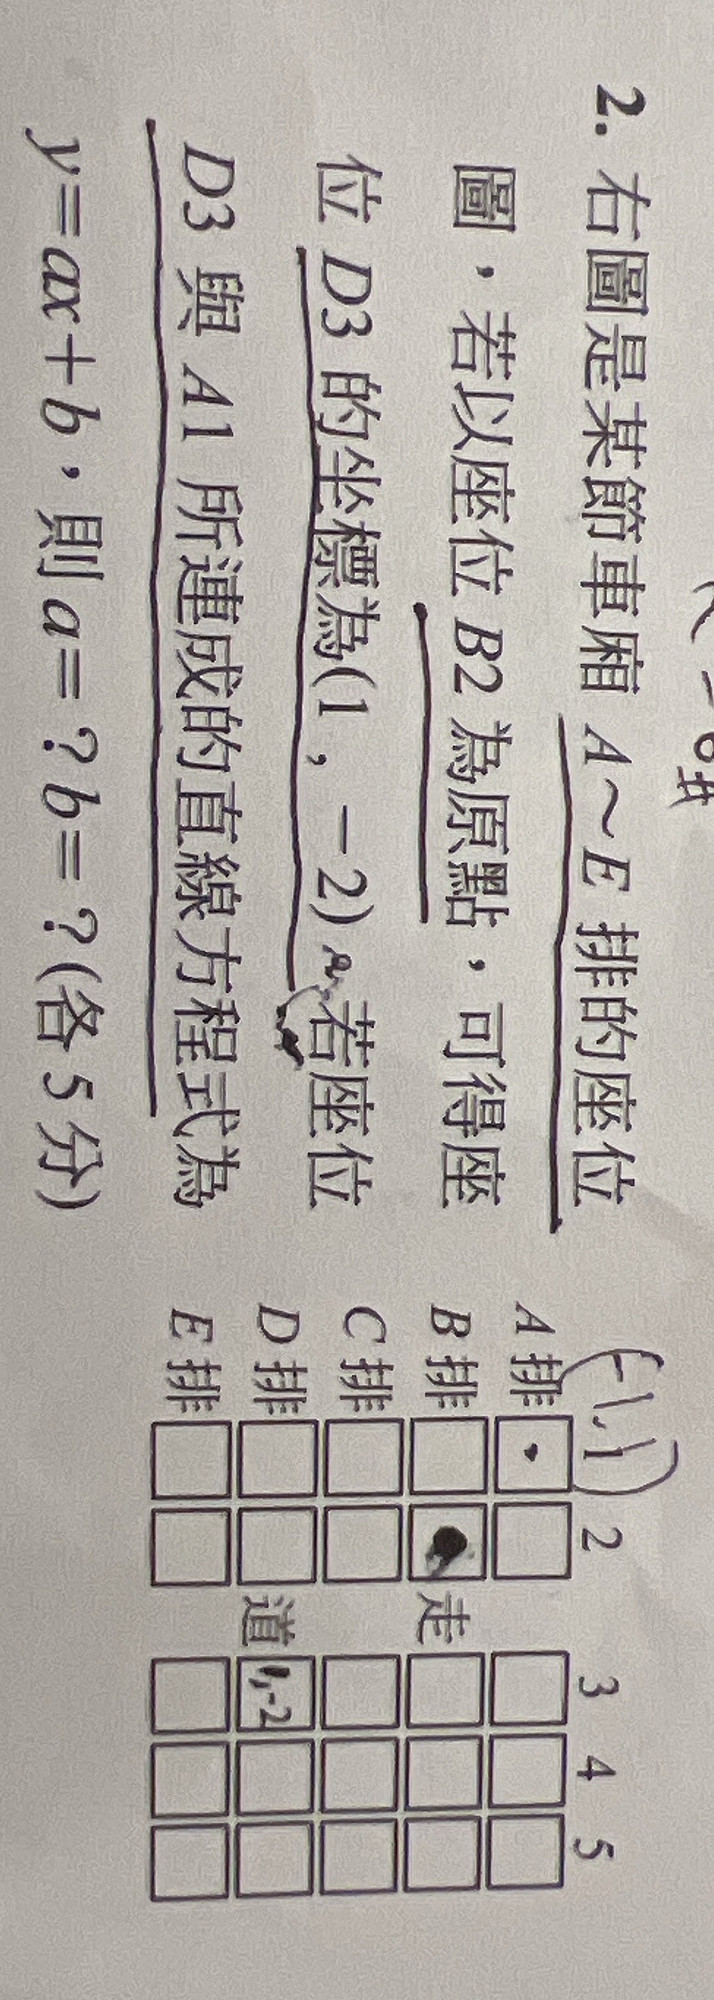 2. 右圖是某節車廂 A～E 排的座位
圖，若以座位 B2 為原點，可得座
位 D3 的坐標為(1，－2)。若座位
D3 與 A1 所連成的直線方程式為
y＝ax＋b，則 a＝？b＝？(各 5 分)
(-1,1)
1 2 3 4 5
A 排
B 排 走
C 排
D 排 道 1,-2
E 排